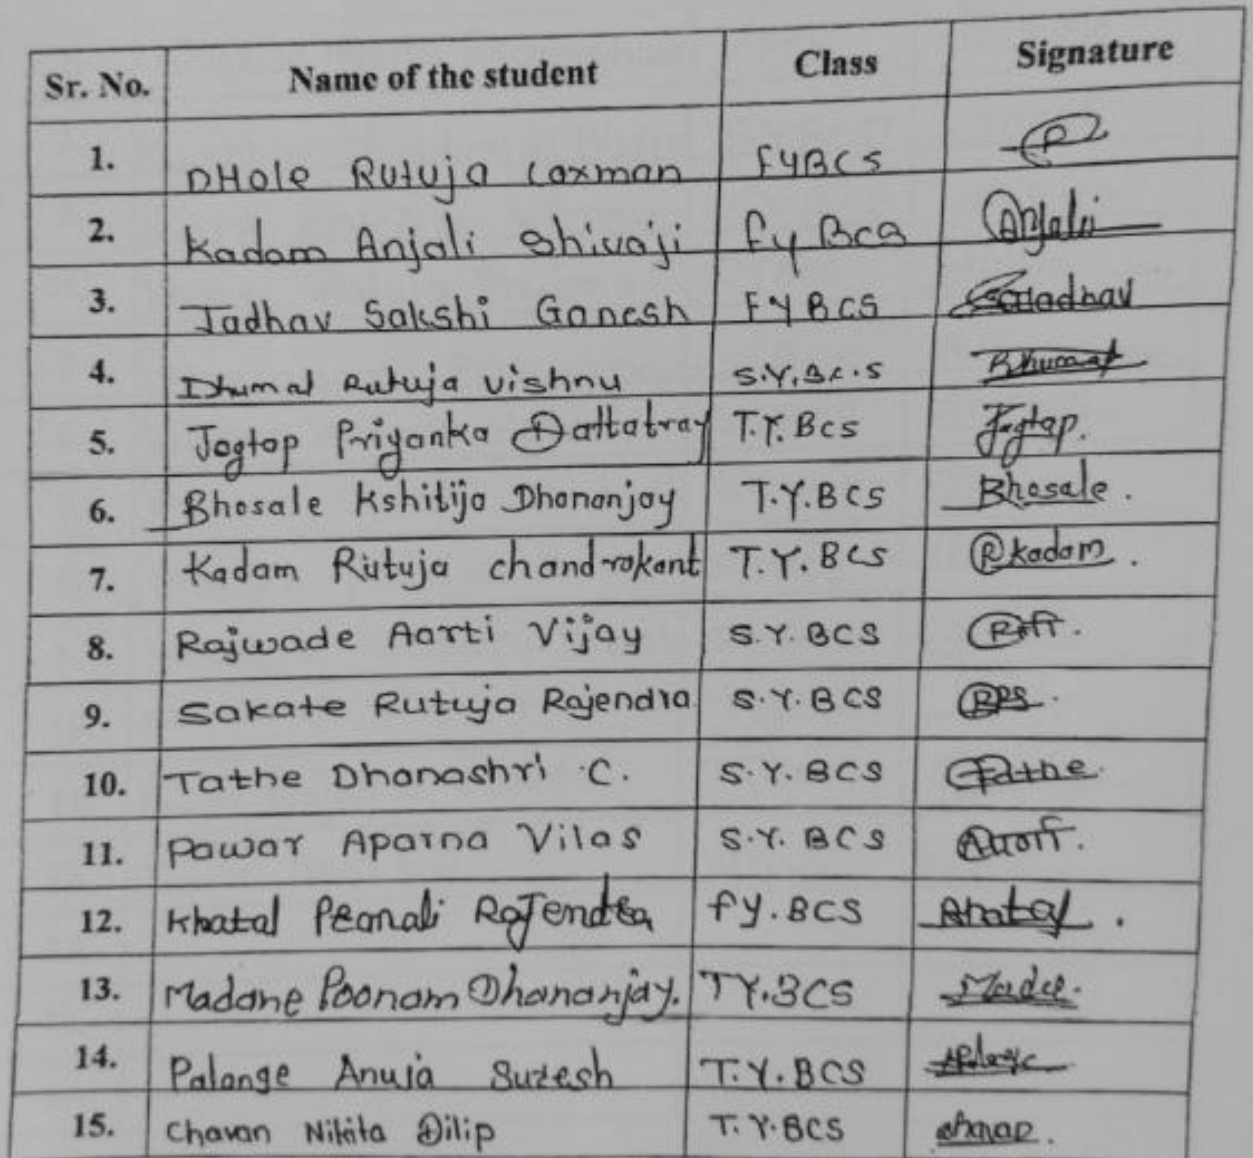 Sr. No. Name of the student Class Signature
1. DHole Rutuja Laxman FYBCS
2. Kadam Anjali Shivaji Fy BCS Anjali
3. Jadhav Sakshi Ganesh FYBCS Jadhav
4. Dhumal Rutuja Vishnu S.Y.B.C.S
5. Jagtap Priyanka Dattatray T.Y. Bcs Jagtap.
6. Bhosale Kshitija Dhananjay T.Y.BCS Bhosale.
7. Kadam Rutuja chandrakant T.Y. BCS Rkadam.
8. Rajwade Aarti Vijay S.Y. BCS
9. Sakate Rutuja Rajendra S.Y. BCS
10. Tathe Dhanashri C. S.Y. BCS Tathe
11. Pawar Aparna Vilas S.Y. BCS
12. Khatal Rajendra FY.BCS Khatal.
13. Madane Poonam Dhananjay. TY.BCS
14. Palange Anuja Suresh T.Y.BCS
15. Chavan Nikita Dilip T.Y.BCS